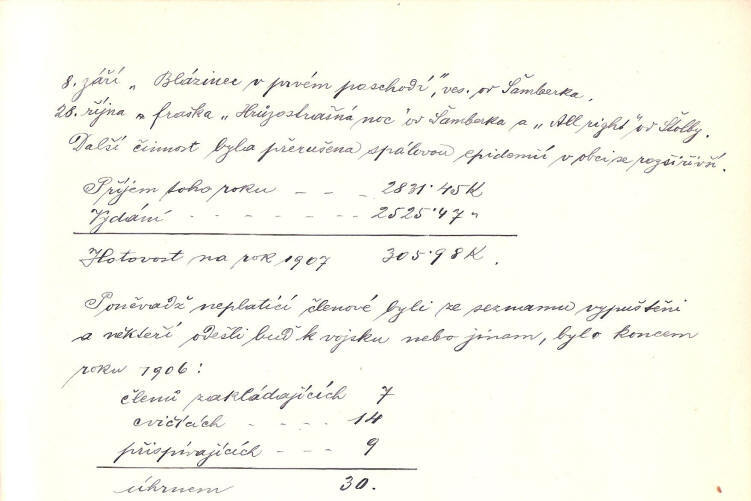 8. září „Blázinec v prvém poschodí", ves. od Šamberka.
28. října „ fraška „Hrůzostrašná noc" od Šamberka a „All right" od Štolby.
Další činnost byla přerušena spálovou epidemií v obci se rozšířivší.
Příjem toho roku - - - 2831·45 K
Vydání - - - - - - - - 2525·47 „
Hotovost na rok 1907 305·98 K.
Poněvadž neplatící členové byli ze seznamu vypuštěni
a někteří odešli buď k vojsku nebo jinam, bylo koncem
roku 1906:
členů zakládajících 7
cvičících - - - - 14
přispívajících - - - 9
úhrnem 30.